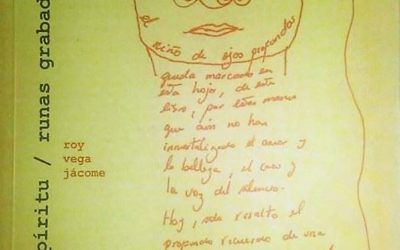 píritu / runas grabad
roy
vega
jácome
el niño de ojos profundos
queda marcado en
esta hoja, de este
libro, por estas manos
que aún no han
inmortalizado el amor y
la belleza, el caos y
la voz del silencio.
Hoy, solo resalto el
profundo recuerdo de una